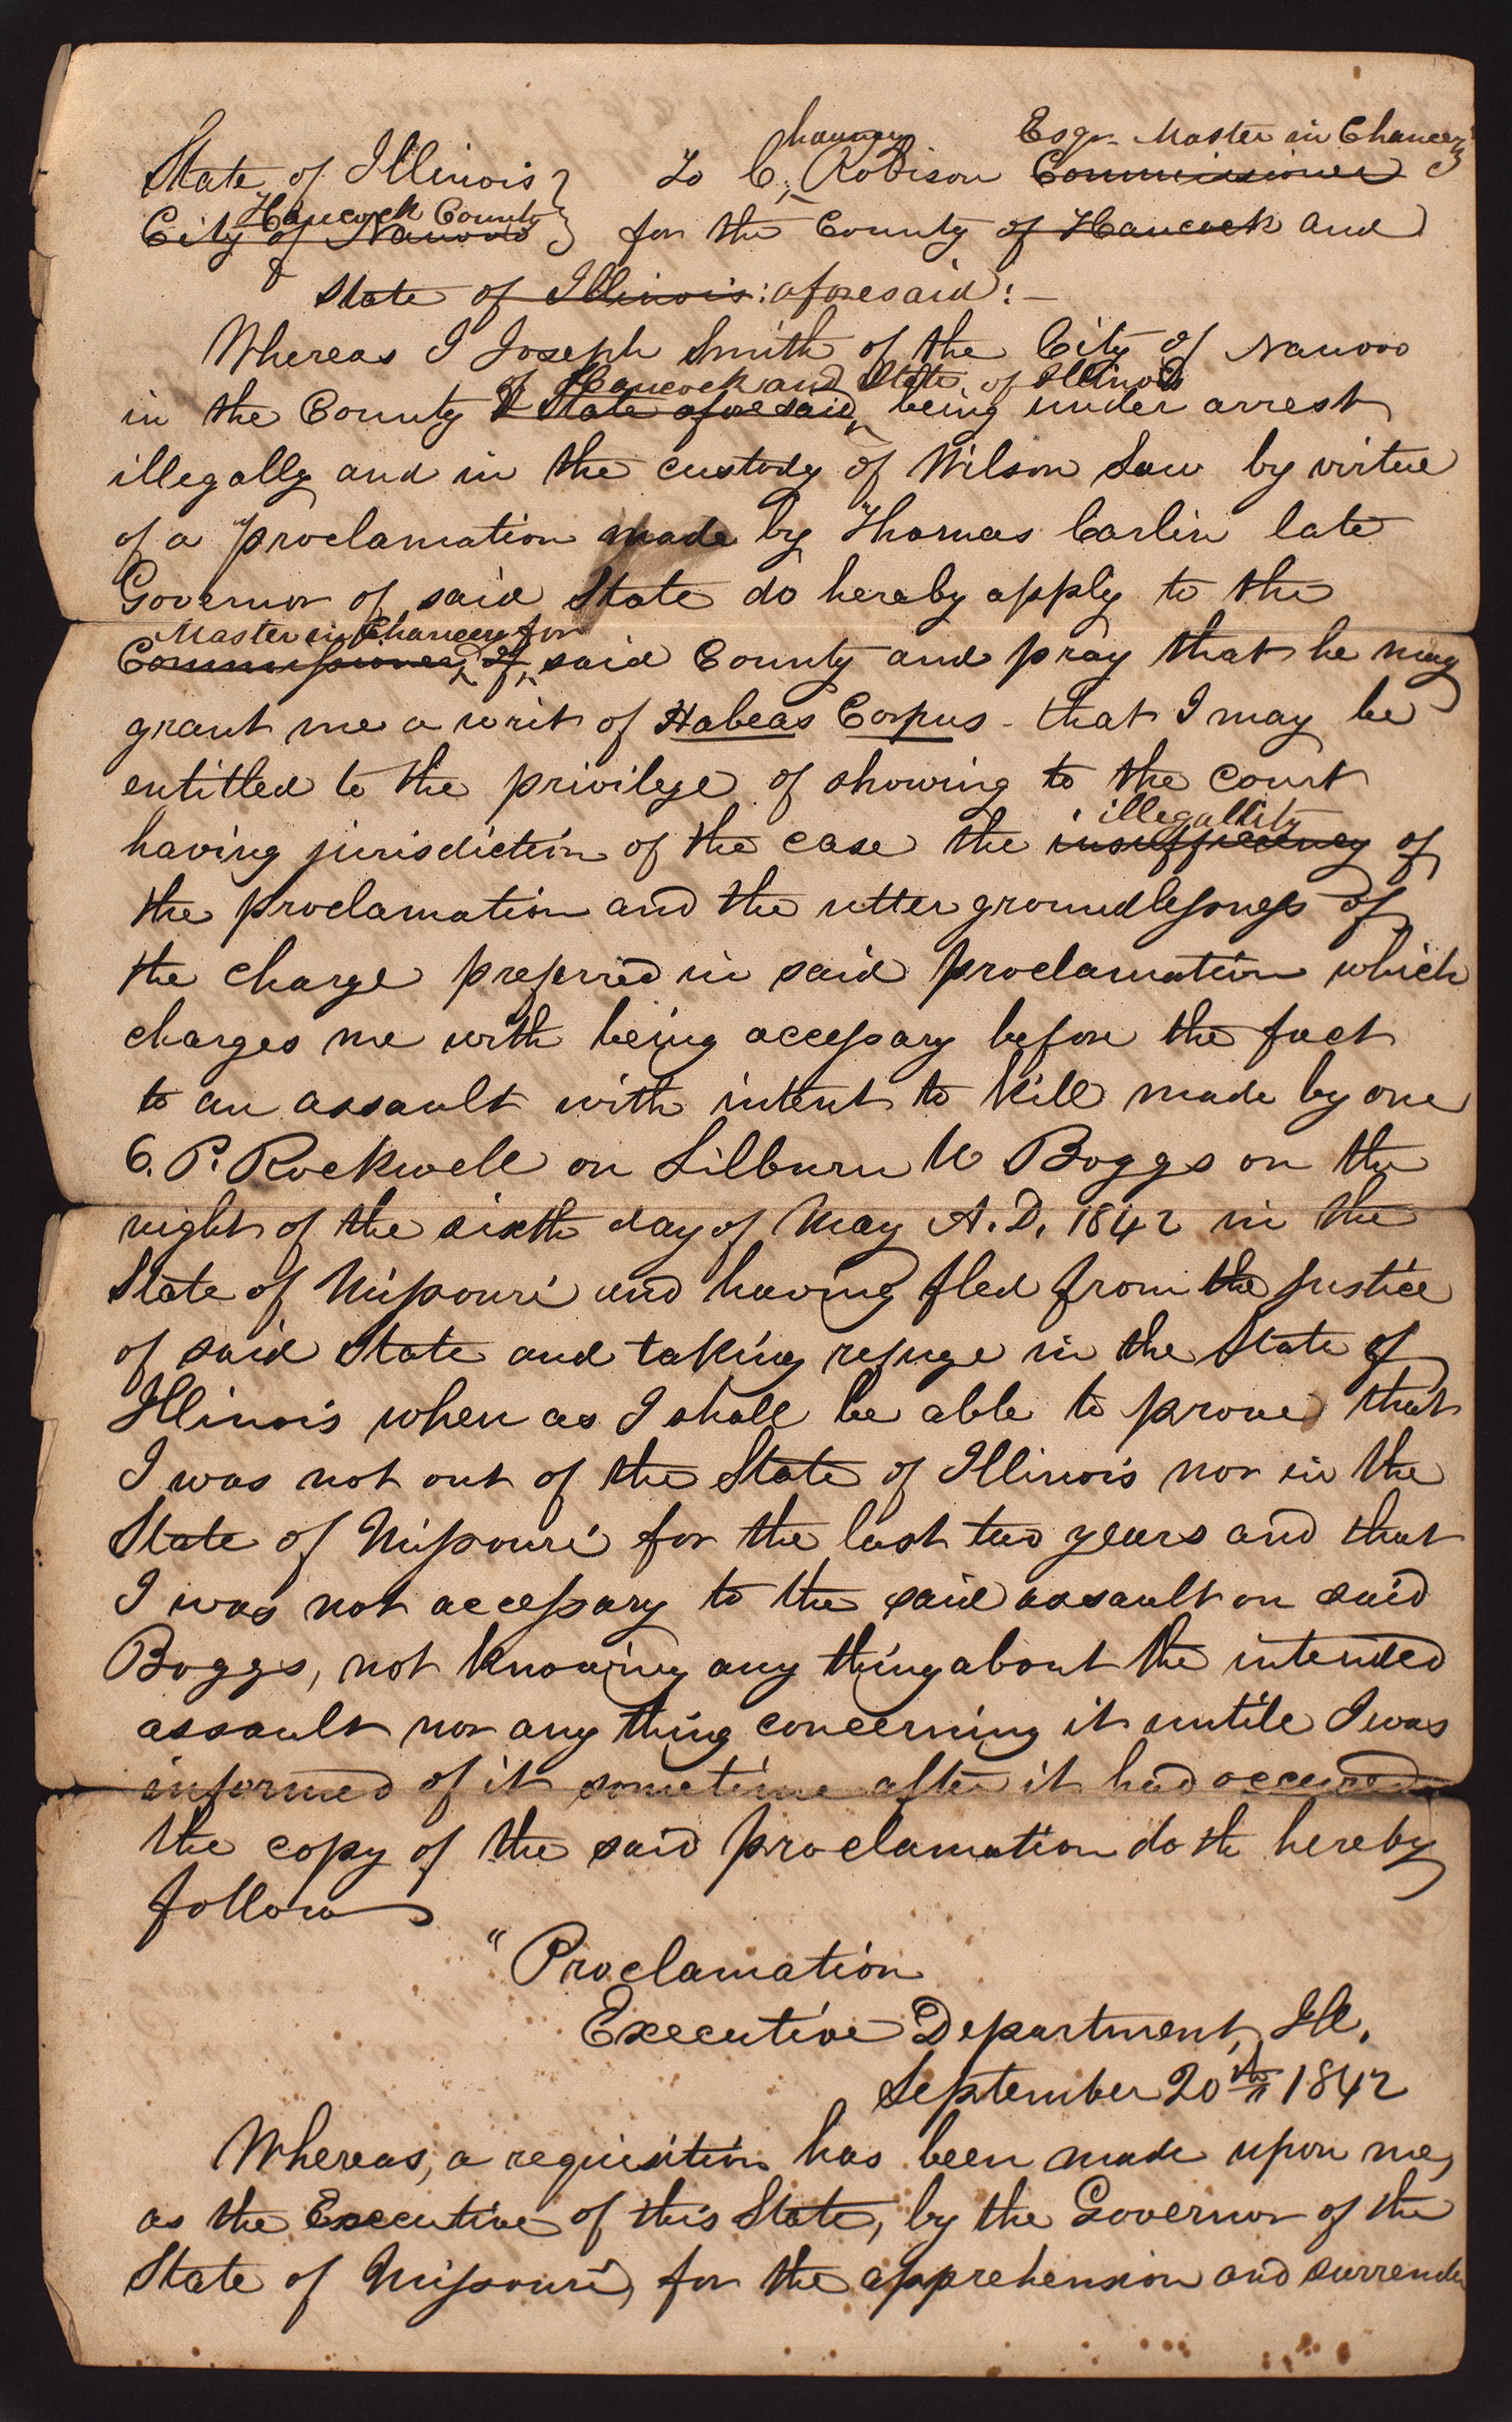 hauncy Esqr. Master in Chancery
State of Illinois } To C. Robison Commissioner
Hancock County
City of Nauvoo } for the County of Hancock and
&
State of Illinois: aforesaid:—
Whereas I Joseph Smith of the City of Nauvoo
of Hancock and State of Illinois
in the County & State aforesaid, being under arrest
illegally and in the custody of Wilson Law by virtue
of a proclamation made by Thomas Carlin late
Governor of said State do hereby apply to the
Master in Chancery for
Commissioner, of, said County and pray that he may
grant me a writ of Habeas Corpus - that I may be
entitled to the privilege of showing to the court
illegallity
having jurisdiction of the case the insufficiency of
the proclamation and the utter groundlessness of
the charge preferred in said proclamation which
charges me with being accessary before the fact
to an assault with intent to kill made by one
O. P. Rockwell on Lilburn W Boggs on the
night of the sixth day of May A.D. 1842 in the
State of Missouri and having fled from the justice
of said State and taking refuge in the State of
Illinois when as I shall be able to prove that
I was not out of the State of Illinois nor in the
State of Missouri for the last two years and that
I was not accessary to the said assault on said
Boggs, not knowing any thing about the intended
assault nor any thing concerning it untile I was
informed of it sometime after it had occured
the copy of the said proclamation doth hereby
follow
"Proclamation
Executive Department, Ill.
September 20th 1842
Whereas, a requisition has been made upon me,
as the Executive of this State, by the Governor of the
State of Missouri, for the apprehension and surrender